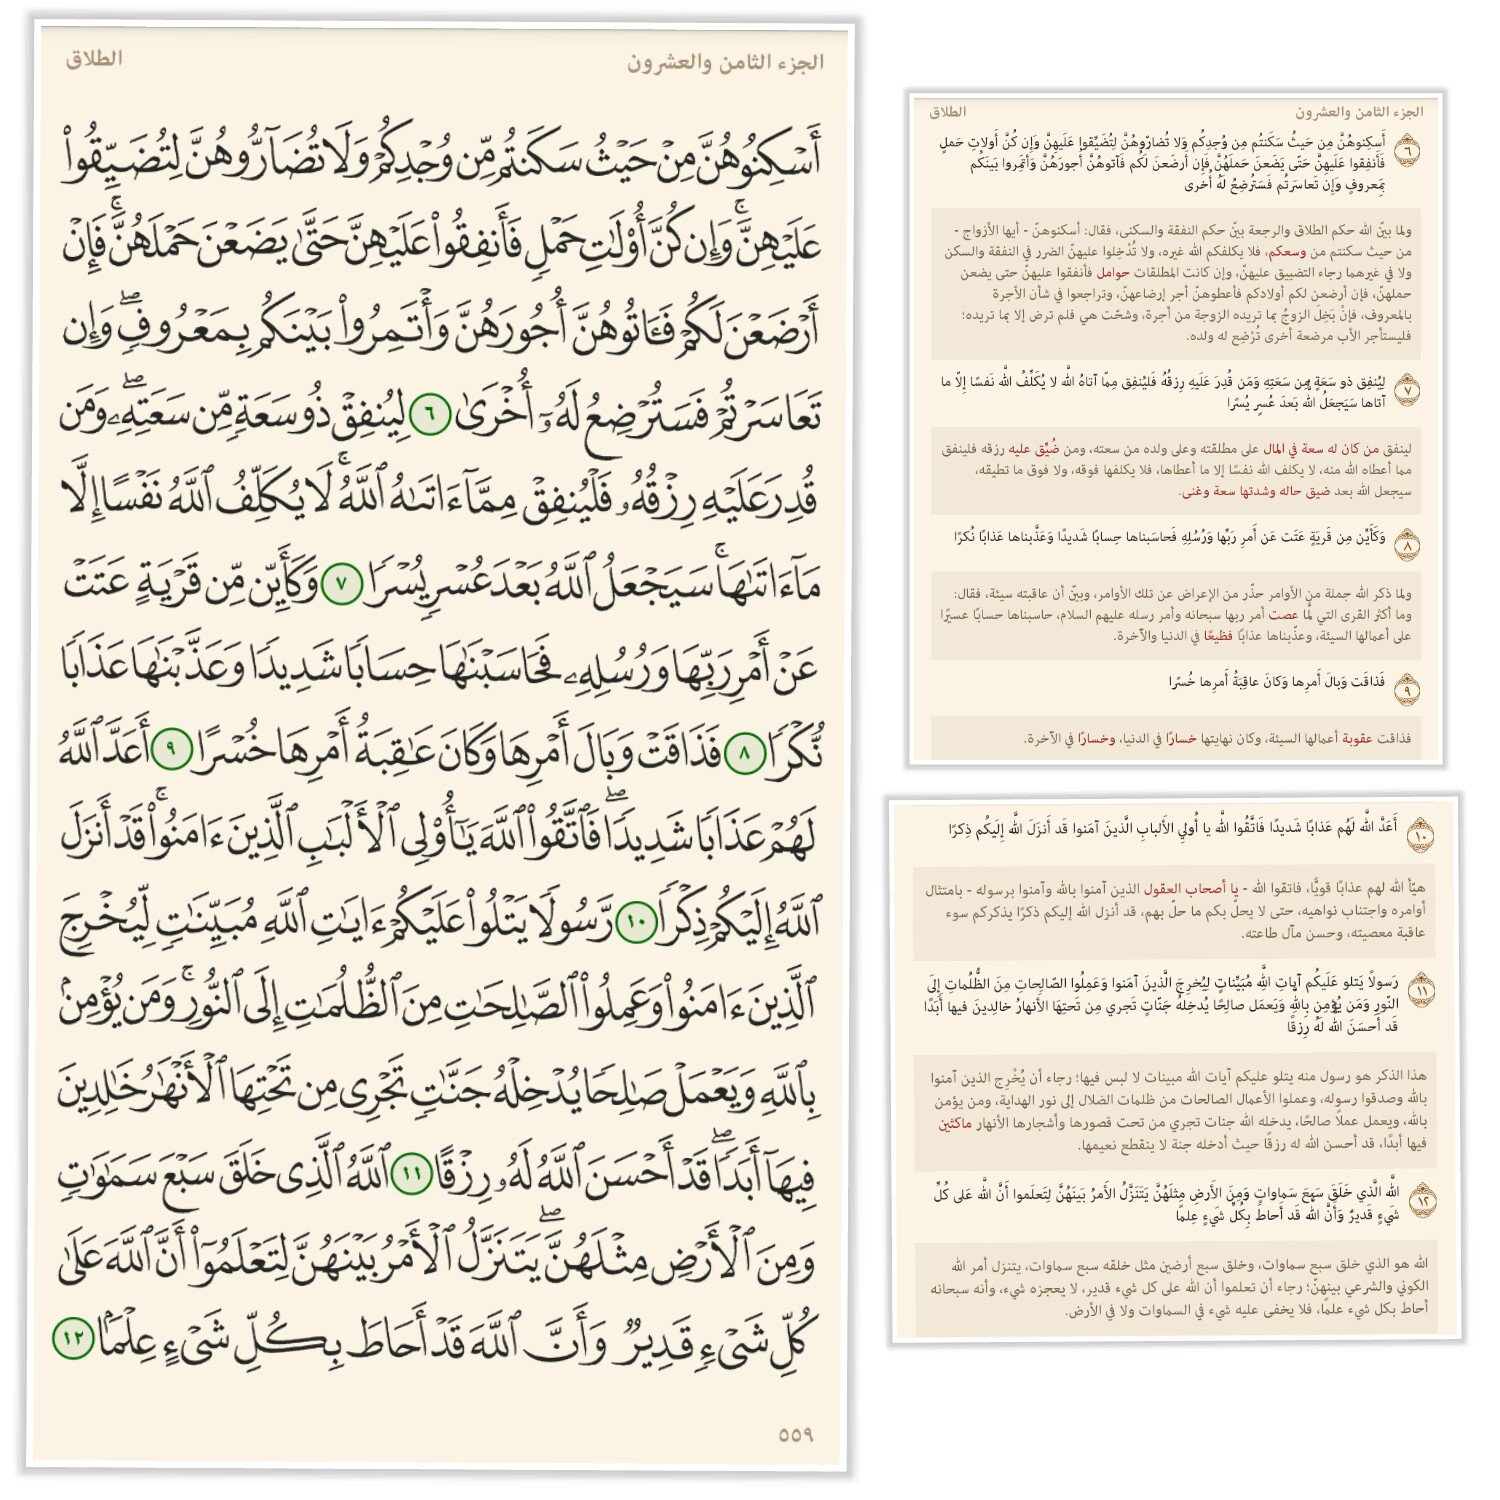 الجزء الثامن والعشرون
الطلاق
أَسْكِنُوهُنَّ مِنْ حَيْثُ سَكَنتُم مِّن وُجْدِكُمْ وَلَا تُضَآرُّوهُنَّ لِتُضَيِّقُوا۟
عَلَيْهِنَّ ۚ وَإِن كُنَّ أُو۟لَٰتِ حَمْلٍ فَأَنفِقُوا۟ عَلَيْهِنَّ حَتَّىٰ يَضَعْنَ حَمْلَهُنَّ ۚ فَإِنْ
أَرْضَعْنَ لَكُمْ فَـَٔاتُوهُنَّ أُجُورَهُنَّ وَأْتَمِرُوا۟ بَيْنَكُم بِمَعْرُوفٍ ۖ وَإِن
تَعَاسَرْتُمْ فَسَتُرْضِعُ لَهُۥٓ أُخْرَىٰ ٦ لِيُنفِقْ ذُو سَعَةٍ مِّن سَعَتِهِۦ ۖ وَمَن
قُدِرَ عَلَيْهِ رِزْقُهُۥ فَلْيُنفِقْ مِمَّآ ءَاتَىٰهُ ٱللَّهُ ۚ لَا يُكَلِّفُ ٱللَّهُ نَفْسًا إِلَّا
مَآ ءَاتَىٰهَا ۚ سَيَجْعَلُ ٱللَّهُ بَعْدَ عُسْرٍ يُسْرًا ٧ وَكَأَيِّن مِّن قَرْيَةٍ عَتَتْ
عَنْ أَمْرِ رَبِّهَا وَرُسُلِهِۦ فَحَاسَبْنَٰهَا حِسَابًا شَدِيدًا وَعَذَّبْنَٰهَا عَذَابًا
نُّكْرًا ٨ فَذَاقَتْ وَبَالَ أَمْرِهَا وَكَانَ عَٰقِبَةُ أَمْرِهَا خُسْرًا ٩ أَعَدَّ ٱللَّهُ
لَهُمْ عَذَابًا شَدِيدًا ۖ فَٱتَّقُوا۟ ٱللَّهَ يَٰٓأُو۟لِى ٱلْأَلْبَٰبِ ٱلَّذِينَ ءَامَنُوا۟ ۚ قَدْ أَنزَلَ
ٱللَّهُ إِلَيْكُمْ ذِكْرًا ١٠ رَّسُولًا يَتْلُوا۟ عَلَيْكُمْ ءَايَٰتِ ٱللَّهِ مُبَيِّنَٰتٍ لِّيُخْرِجَ
ٱلَّذِينَ ءَامَنُوا۟ وَعَمِلُوا۟ ٱلصَّٰلِحَٰتِ مِنَ ٱلظُّلُمَٰتِ إِلَى ٱلنُّورِ ۚ وَمَن يُؤْمِنۢ
بِٱللَّهِ وَيَعْمَلْ صَٰلِحًا يُدْخِلْهُ جَنَّٰتٍ تَجْرِى مِن تَحْتِهَا ٱلْأَنْهَٰرُ خَٰلِدِينَ
فِيهَآ أَبَدًا ۖ قَدْ أَحْسَنَ ٱللَّهُ لَهُۥ رِزْقًا ١١ ٱللَّهُ ٱلَّذِى خَلَقَ سَبْعَ سَمَٰوَٰتٍ
وَمِنَ ٱلْأَرْضِ مِثْلَهُنَّ ۖ يَتَنَزَّلُ ٱلْأَمْرُ بَيْنَهُنَّ لِتَعْلَمُوٓا۟ أَنَّ ٱللَّهَ عَلَىٰ
كُلِّ شَىْءٍ قَدِيرٌ وَأَنَّ ٱللَّهَ قَدْ أَحَاطَ بِكُلِّ شَىْءٍ عِلْمًۢا ١٢
٥٥٩
الجزء الثامن والعشرون
الطلاق
٦ أَسكِنوهُنَّ مِن حَيثُ سَكَنتُم مِن وُجدِكُم وَلا تُضارّوهُنَّ لِتُضَيِّقوا عَلَيهِنَّ وَإِن كُنَّ أُولاتِ حَملٍ
فَأَنفِقوا عَلَيهِنَّ حَتّى يَضَعنَ حَملَهُنَّ فَإِن أَرضَعنَ لَكُم فَآتوهُنَّ أُجورَهُنَّ وَأتَمِروا بَينَكُم
بِمَعروفٍ وَإِن تَعاسَرتُم فَسَتُرضِعُ لَهُ أُخرى
ولما بيّن الله حكم الطلاق والرجعة بيّن حكم النفقة والسكنى، فقال: أسكنوهنّ - أيها الأزواج -
من حيث سكنتم من وسعكم، فلا يكلفكم الله غيره، ولا تُدْخِلوا عليهنّ الضرر في النفقة والسكن
ولا في غيرهما رجاء التضييق عليهنّ، وإن كانت المطلقات حوامل فأنفقوا عليهنّ حتى يضعن
حملهنّ، فإن أرضعن لكم أولادكم فأعطوهنّ أجر إرضاعهنّ، وتراجعوا في شأن الأجرة
بالمعروف، فإنْ بَخِلَ الزوجُ بما تريده الزوجة من أجرة، وشحّت هي فلم ترض إلا بما تريده؛
فليستأجر الأب مرضعة أخرى تُرْضِع له ولده.
٧ لِيُنفِق ذو سَعَةٍ مِن سَعَتِهِ وَمَن قُدِرَ عَلَيهِ رِزقُهُ فَليُنفِق مِمّا آتاهُ اللَّه لا يُكَلِّفُ اللَّه نَفسًا إِلّا ما
آتاها سَيَجعَلُ اللَّه بَعدَ عُسرٍ يُسرًا
لينفق من كان له سعة في المال على مطلقته وعلى ولده من سعته، ومن ضُيِّق عليه رزقه فلينفق
مما أعطاه الله منه، لا يكلف الله نفسًا إلا ما أعطاها، فلا يكلفها فوقه، ولا فوق ما تطيقه،
سيجعل الله بعد ضيق حاله وشدتها سعة وغنى.
٨ وَكَأَيِّن مِن قَريَةٍ عَتَت عَن أَمرِ رَبِّها وَرُسُلِهِ فَحاسَبناها حِسابًا شَديدًا وَعَذَّبناها عَذابًا نُكرًا
ولما ذكر الله جملة من الأوامر حذّر من الإعراض عن تلك الأوامر، وبيّن أن عاقبته سيئة، فقال:
وما أكثر القرى التي لمّا عصت أمر ربها سبحانه وأمر رسله عليهم السلام، حاسبناها حسابًا عسيرًا
على أعمالها السيئة، وعذّبناها عذابًا فظيعًا في الدنيا والآخرة.
٩ فَذاقَت وَبالَ أَمرِها وَكانَ عاقِبَةُ أَمرِها خُسرًا
فذاقت عقوبة أعمالها السيئة، وكان نهايتها خسارًا في الدنيا، وخسارًا في الآخرة.
١٠ أَعَدَّ اللَّه لَهُم عَذابًا شَديدًا فَاتَّقُوا اللَّه يا أُولِي الأَلبابِ الَّذينَ آمَنوا قَد أَنزَلَ اللَّه إِلَيكُم ذِكرًا
هيّأ الله لهم عذابًا قويًّا، فاتقوا الله - يا أصحاب العقول الذين آمنوا بالله وآمنوا برسوله - بامتثال
أوامره واجتناب نواهيه، حتى لا يحلّ بكم ما حلّ بهم، قد أنزل الله إليكم ذكرًا يذكركم سوء
عاقبة معصيته، وحسن مآل طاعته.
١١ رَسولًا يَتلو عَلَيكُم آياتِ اللَّه مُبَيِّناتٍ لِيُخرِجَ الَّذينَ آمَنوا وَعَمِلُوا الصّالِحاتِ مِنَ الظُّلُماتِ إِلَى
النّورِ وَمَن يُؤمِن بِاللَّهِ وَيَعمَل صالِحًا يُدخِلهُ جَنّاتٍ تَجري مِن تَحتِهَا الأَنهارُ خالِدينَ فيها أَبَدًا
قَد أَحسَنَ اللَّه لَهُ رِزقًا
هذا الذكر هو رسول منه يتلو عليكم آيات الله مبينات لا لبس فيها؛ رجاء أن يُخْرِج الذين آمنوا
بالله وصدقوا رسوله، وعملوا الأعمال الصالحات من ظلمات الضلال إلى نور الهداية، ومن يؤمن
بالله، ويعمل عملًا صالحًا، يدخله الله جنات تجري من تحت قصورها وأشجارها الأنهار ماكثين
فيها أبدًا، قد أحسن الله له رزقًا حيث أدخله جنة لا ينقطع نعيمها.
١٢ اللَّه الَّذي خَلَقَ سَبعَ سَماواتٍ وَمِنَ الأَرضِ مِثلَهُنَّ يَتَنَزَّلُ الأَمرُ بَينَهُنَّ لِتَعلَموا أَنَّ اللَّه عَلى كُلِّ
شَيءٍ قَديرٌ وَأَنَّ اللَّه قَد أَحاطَ بِكُلِّ شَيءٍ عِلمًا
الله هو الذي خلق سبع سماوات، وخلق سبع أرضين مثل خلقه سبع سماوات، يتنزل أمر الله
الكوني والشرعي بينهنّ؛ رجاء أن تعلموا أن الله على كل شيء قدير، لا يعجزه شيء، وأنه سبحانه
أحاط بكل شيء علمًا، فلا يخفى عليه شيء في السماوات ولا في الأرض.